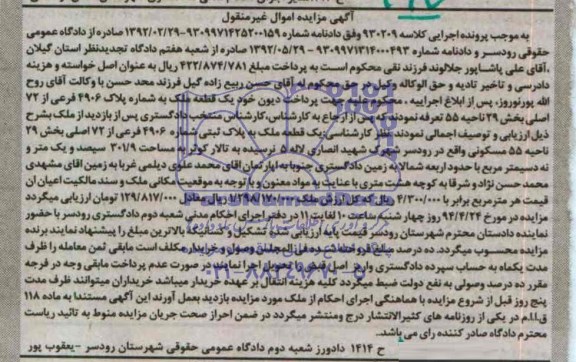 آگهی مزایده اموال غیرمنقول
به موجب پرونده اجرایی کلاسه ۹۳۰۲۰۹ وفق دادنامه شماره ۹۳۰۹۹۷۱۴۲۵۲۰۰۱۵۹-۱۳۹۲/۰۲/۲۹ صادره از دادگاه عمومی
حقوقی رودسر و دادنامه شماره ۹۳۰۹۹۷۱۳۱۴۰۰۰۴۹۳-۱۳۹۲/۰۵/۲۹ صادره از شعبه هفتم دادگاه تجدیدنظر استان گیلان
آقای علی پاشاپور جلالوند فرزند نقی محکوم است به پرداخت مبلغ ۴۲۲/۸۷۴/۷۸۱ ریال به عنوان اصل خواسته و هزینه
دادرسی و تاخیر تادیه و حق الوکاله وکیل در حق محکوم له آقای حسن ربیع زاده گیل فرزند محد حسن با وکالت آقای روح
الله پورنوروز، پس از ابلاغ اجراییه، محکوم علیه جهت پرداخت دیون خود یک قطعه ملک به شماره پلاک ۴۹۰۶ فرعی از ۷۲
اصلی بخش ۲۹ ناحیه ۵۵ تعرفه نمودند که پس از ارجاع به کارشناس، کارشناس منتخب دادگستری پس از بازدید از ملک بشرح
ذیل ارزیابی و توصیف اجمالی نمودند نظر کارشناسی: یک قطعه ملک به پلاک ثبتی شماره ۴۹۰۶ فرعی از ۷۲ اصلی بخش ۲۹
ناحیه ۵۵ مسکونی واقع در رودسر شهرک شهید انصاری لاله ۵ نرسیده به تالار کوثر به مساحت ۳۰۱/۹ سیصد و یک متر و
نه دسیمتر مربع با حدود اربعه شمالا به زمین دادگستری جنوبا به اپارتمان اقای محمد علوی دیلمی غربا به زمین اقای مشهدی
محمد حسن نژاد و شرقا به کوچه هشت متری با عنایت به موارد معنون و با توجه به موقعیت مکانی ملک و سند مالکیت اعیان ان
قیمت هر مترمربع برابر با ۴/۳۰۰/۰۰۰ ریال که کل ارزش ملک ۱/۲۹۸/۱۷۰/۰۰۰ ریال معادل ۱۲۹/۸۱۷/۰۰۰ تومان ارزیابی میگردد
مزایده در مورخ ۹۴/۴/۲۴ روز چهار شنبه ساعت ۱۰ لغایت ۱۱ در دفتر اجرای احکام مدنی شعبه دوم دادگستری رودسر با حضور
نماینده دادستان محترم شهرستان رودسر قیمت پایه ارزیابی شده تشکیل و کسانیکه بالاترین مبلغ را پیشنهاد نمایند برنده
مزایده محسوب میگردد. ده درصد مبلغ فروخته شده فی المجلس وصول و خریدار مکلف است مابقی ثمن معامله را ظرف
مدت یکماه به حساب سپرده دادگستری واریز اصل فیش را تحویل اجرا نمایند در صورت عدم پرداخت مابقی وجه در فرجه
مقرر ده درصد وصولی به نفع دولت ضبط میگردد کلیه هزینه انتقال بر عهده خریدار میباشد خریداران میتوانند ظرف مدت
پنج روز قبل از شروع مزایده با هماهنگی اجرای احکام از ملک مورد مزایده بازدید بعمل آورند این آگهی مستندا به ماده ۱۱۸
ق.ا.م در یکی از روزنامه های کثیرالانتشار درج ومنتشر میگردد در ضمن احراز صحت جریان مزایده منوط به تائید ریاست
محترم دادگاه صادر کننده رای می باشد.
ح ۱۴۱۴ دادورز شعبه دوم دادگاه عمومی حقوقی شهرستان رودسر -یعقوب پور
۰۲۱-۸۸۳۴۹۶۷۰-۵